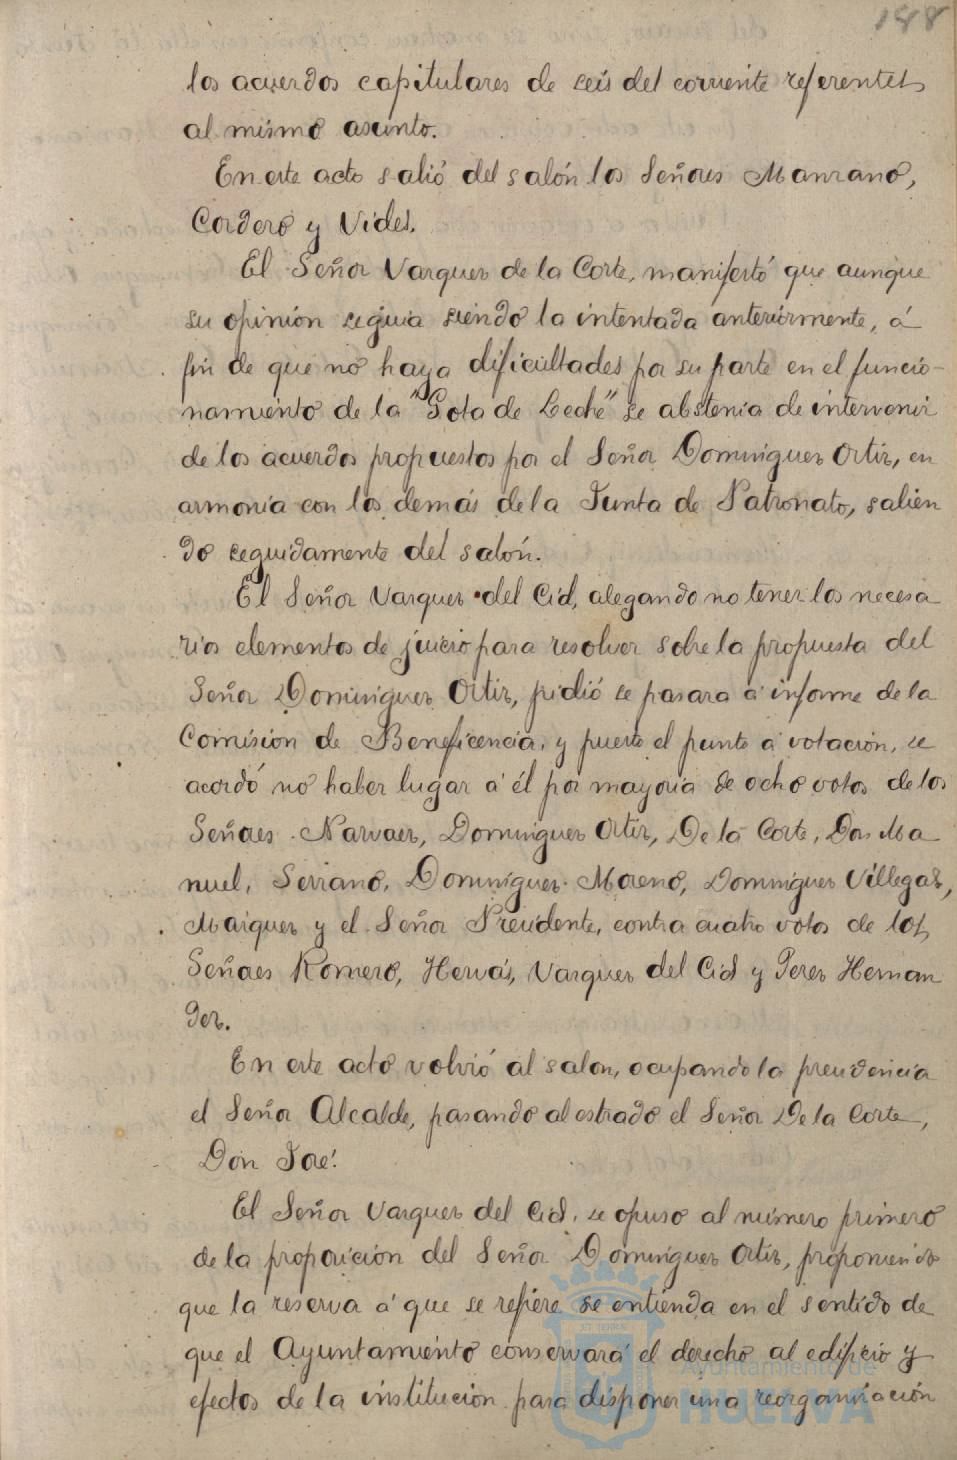 148
los acuerdos capitulares de seis del corriente referentes
al mismo asunto.
En este acto salió del salón los Señores Manzano,
Cordero y Vides.
El Señor Vazquez de la Corte, manifestó que aunque
su opinión seguia siendo la intentada anteriormente, á
fin de que no haya dificultades por su parte en el funcio-
namiento de la "Gota de Leche" se abstenia de intervenir
de los acuerdos propuestos por el Señor Dominguez Ortiz, en
armonia con los demás de la Junta de Patronato, salien
do seguidamente del salón.
El Señor Vazquez del Cid, alegando no tener los necesa
rios elementos de juicio para resolver sobre la propuesta del
Señor Dominguez Ortiz, pidió se pasara á informe de la
Comision de Beneficencia, y puesto el punto á votación, se
acordó no haber lugar á él por mayoria de ocho votos de los
Señores Narvaez, Dominguez Ortiz, De la Corte, Don Ma
nuel, Serrano, Dominguez Moreno, Dominguez Villegas,
Maiquez y el Señor Presidente, contra cuatro votos de los
Señores Romero, Hervás, Vazquez del Cid y Perez Hernan
dez.
En este acto volvió al salon, ocupando la presidencia
el Señor Alcalde, pasando al estrado el Señor De la Corte,
Don José.
El Señor Vazquez del Cid, se opuso al número primero
de la proposición del Señor Dominguez Ortiz, proponiendo
que la reserva á que se refiere se entienda en el sentido de
que el Ayuntamiento conservará el derecho al edificio y
efectos de la institución para disponer una reorganización
Ayuntamiento de
HUELVA